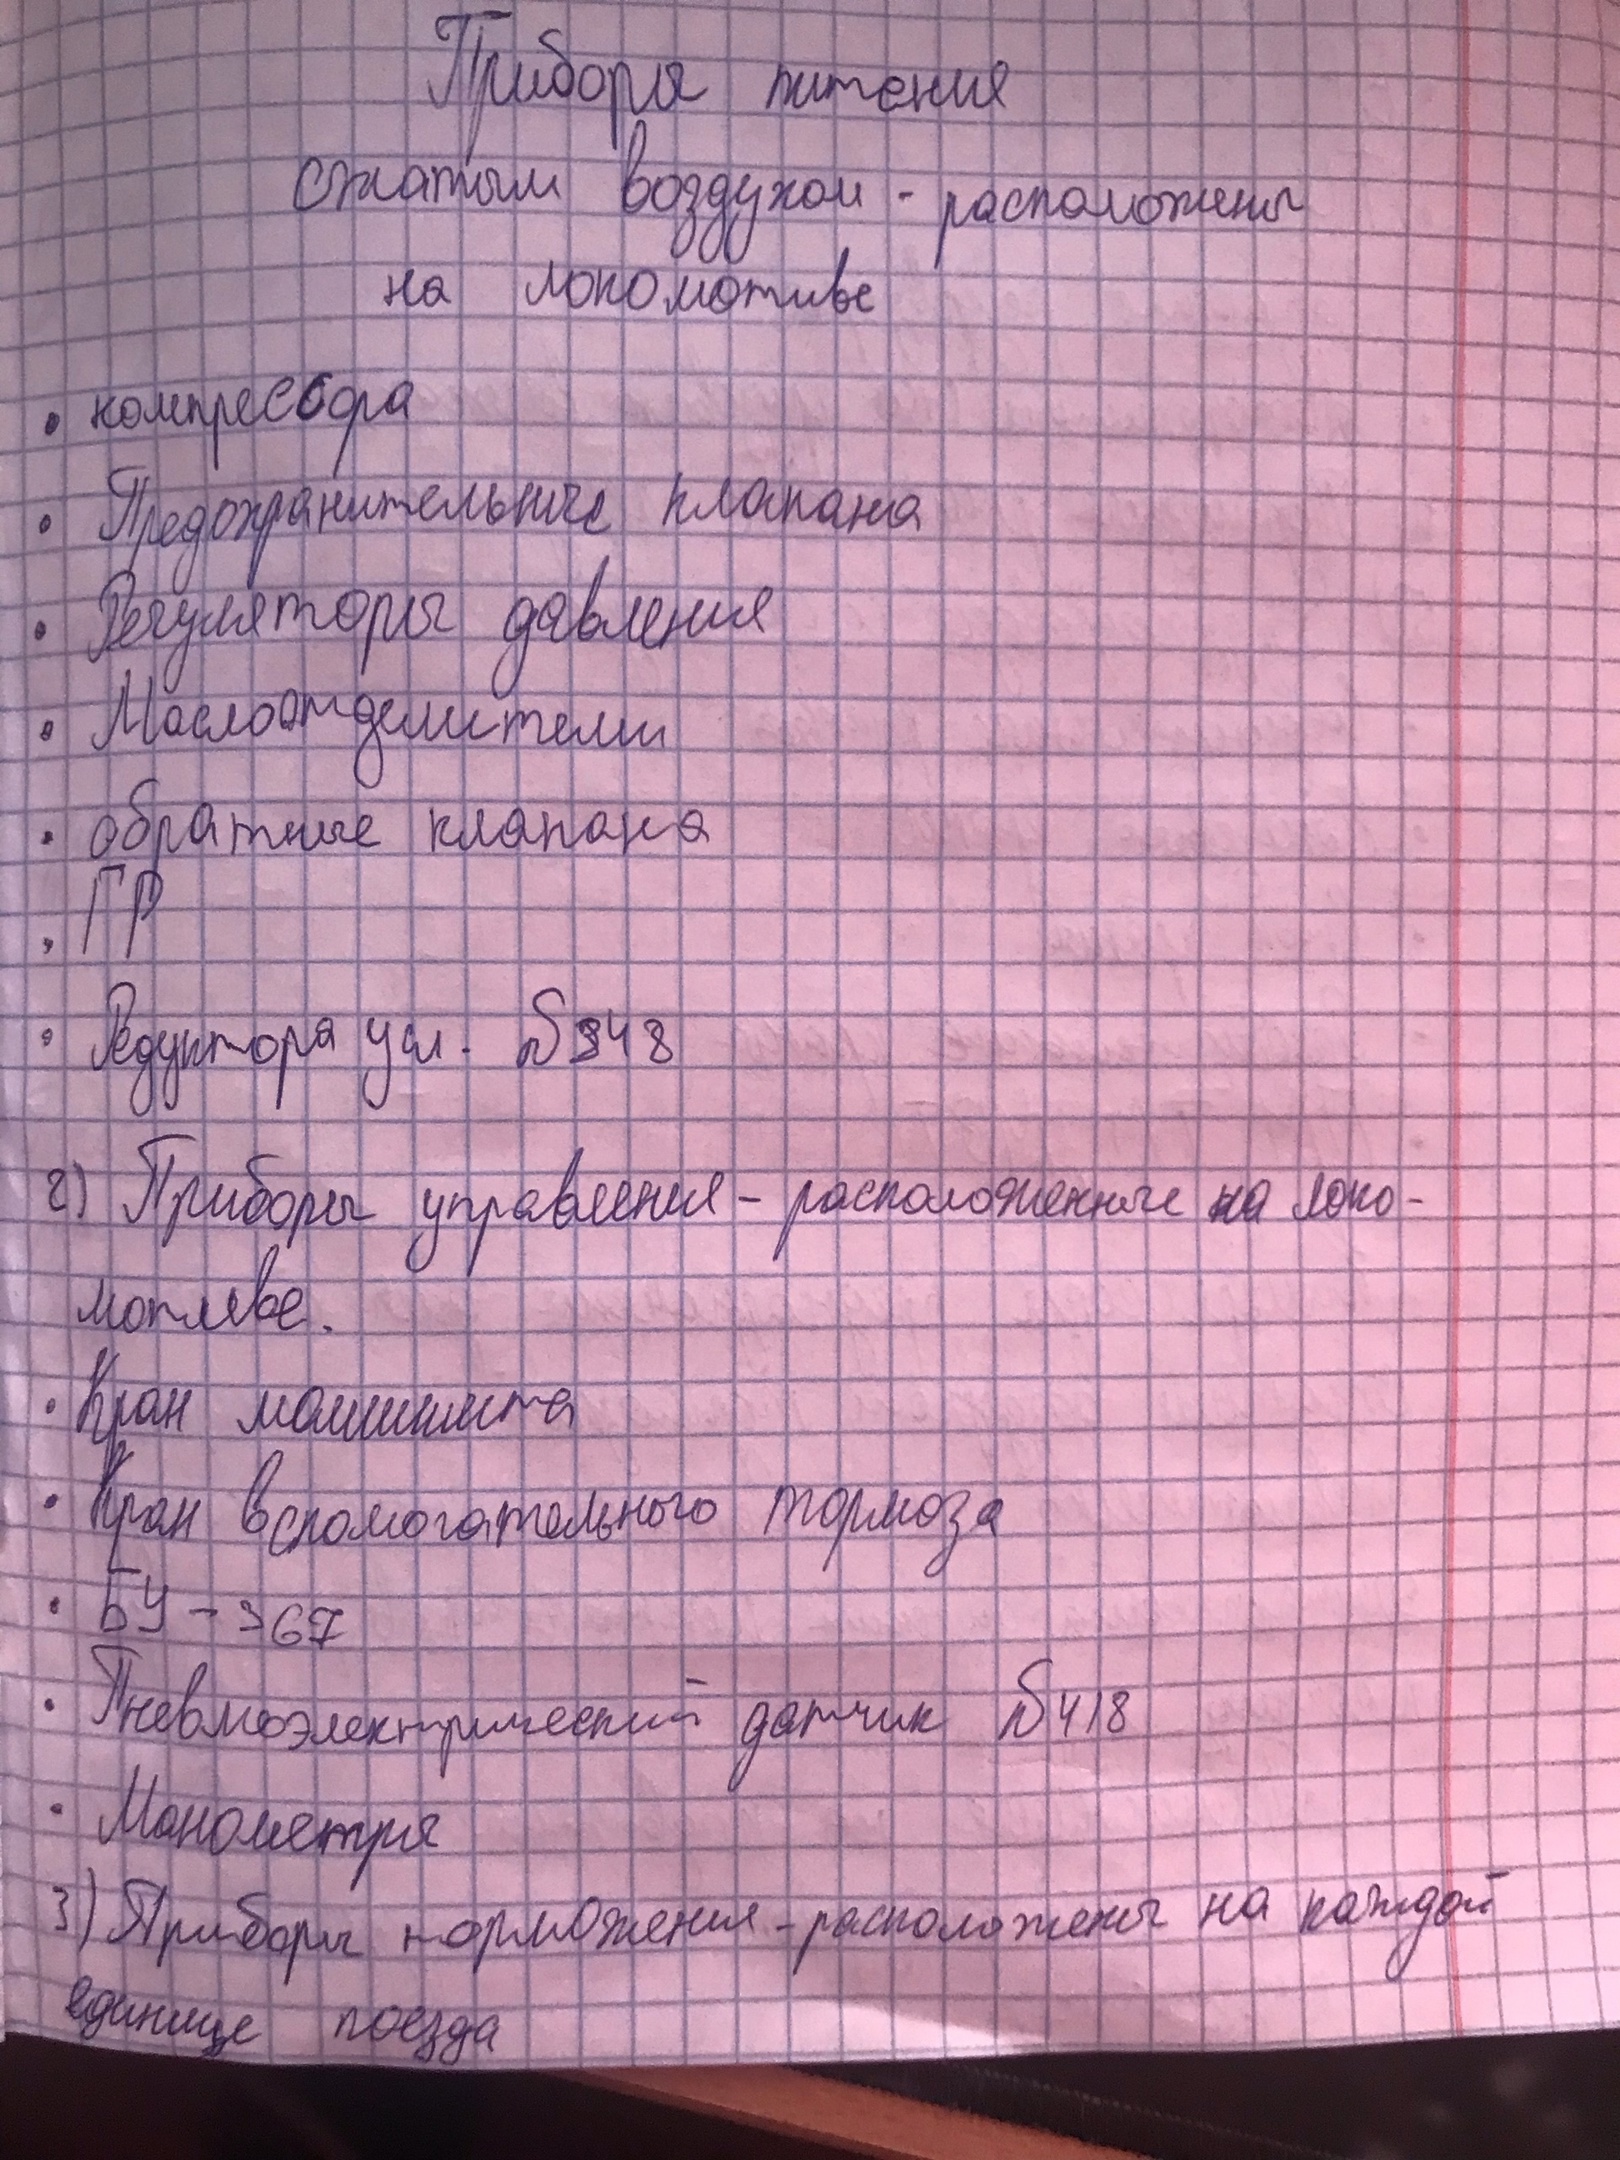 Приборы питения
сжатым воздухом - расположены
на локомотиве
• компрессора
• Предохранительные клапана
• Регуляторы давления
• Маслоотделители
• обратные клапана
• ГР
• Редуктора усл. №348
2) Приборы управления - расположенные на локо-
мотиве.
• Кран машиниста
• Кран вспомогательного тормоза
• БУ - 367
• Пневмоэлектрический датчик №418
• Манометры
3) Приборы торможения - расположены на каждой
единице поезда